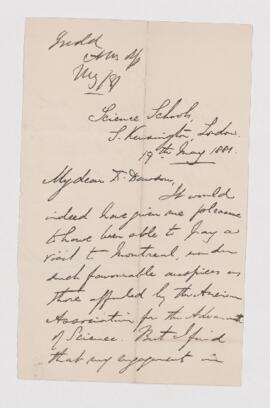 Judd
Science Schools,
S. Kensington, London.
19th May 1881.
My dear Dr. Dawson,
It would
indeed have given me pleasure
to have been able to pay a
visit to Montreal, under
such favourable auspices as
those afforded by the American
Association for the Advancement
of Science. But I find
that my engagement in